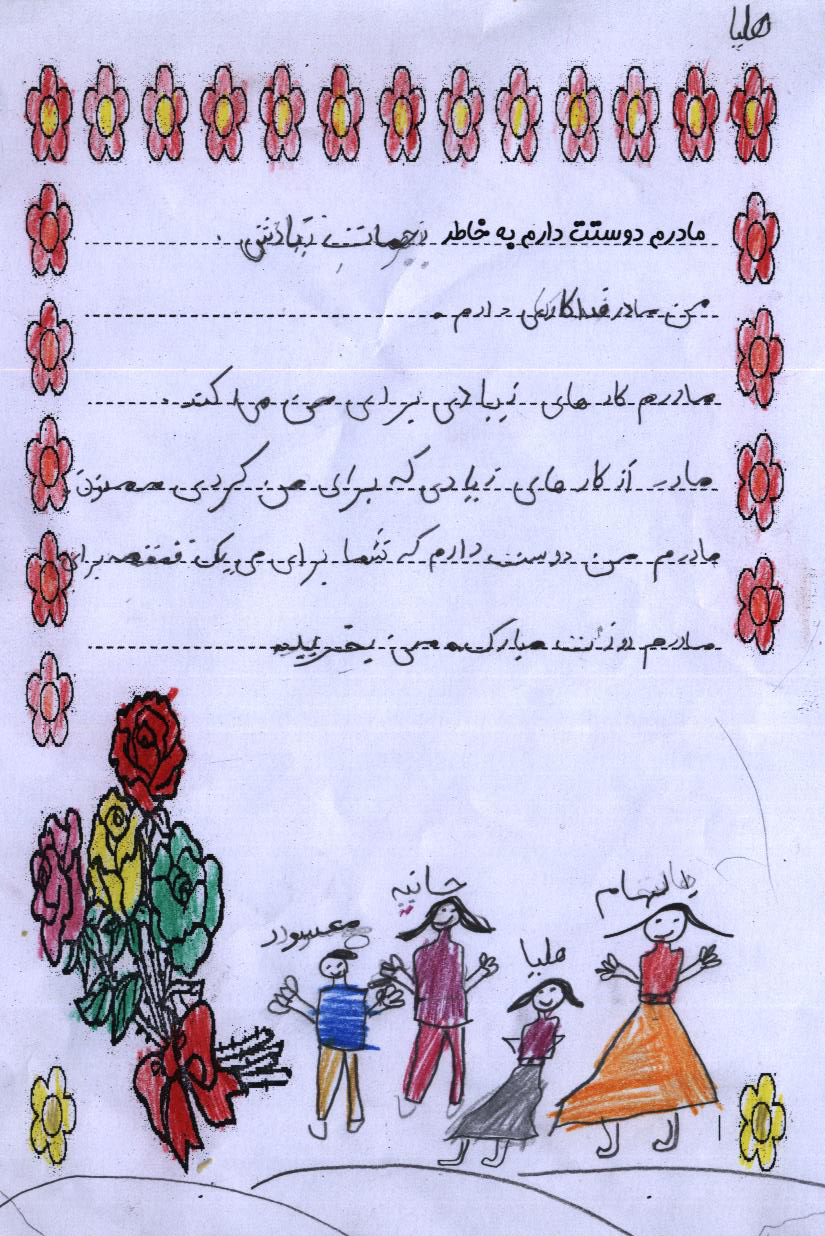 هلیا
مادرم دوستت دارم به خاطر زحمات زیادش.
من مادر فداکاری دارم.
مادرم کار های زیادی برای من می کند.
مادر از کار های زیادی که برای من کردی ممنون
مادرم من دوست دارم که شما برای من یک قمقمه برای
مادرم روزت مبارک. من بخرید.
حانیه
هلیا